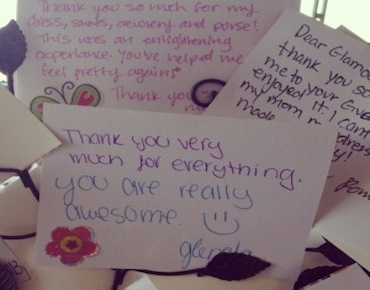 Thank you so much for my
dress, shoes, jewelry and purse!
This was an enlightening
experience. You've helped me
feel pretty again!
Thank you
Dear Glamou
thank you so
me to your Give
enjoyed it. I can't
my mom
made
Thank you very
much for everything.
you are really
awesome.